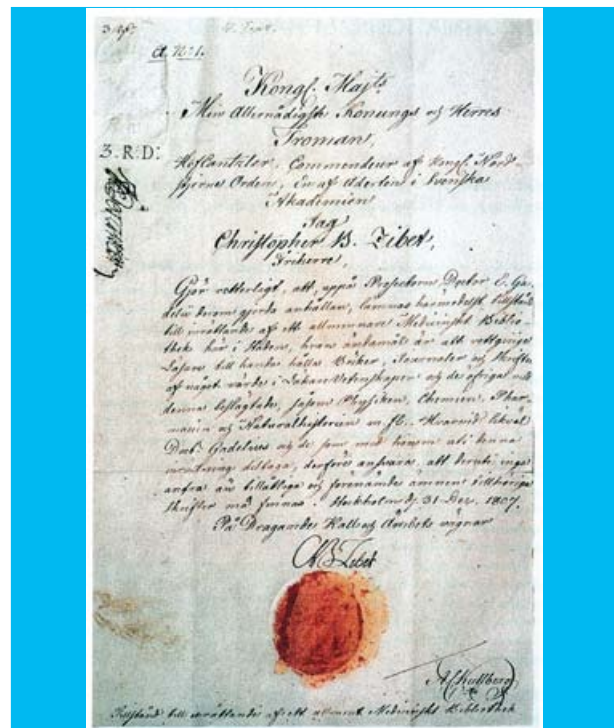 A. N:o 1.
Kongl. Maj:ts
Min Allernådigste Konungs och Herres
Troman,
3. R:D:
Hofcantzler, Commendeur af Kongl. Nord-
stjerne Orden, En af Aderton i Svenska
Akademien
Jag
Christopher B. Zibet,
Friherre,
Gjör vetterligt, att, uppå Professoren Doctor E. Ga-
delii derom gjorda anhållan, lämnas härmedelst tillstånd
till inrättande af ett allmännare Medicinskt Biblio-
thek här i Staden, hvars ändamål är att
Läsare till handa hålla Böcker, Journaler och Skrifter
af något värde i Läkare Vetenskapen och de öfriga med
denna beslägtade, såsom Physiken, Chemien, Phar-
macien och Naturalhistorien m. fl. Hvarvid likväl
Doct. Gadelius och de som med honom uti denna
inrättning deltaga, derföre ansvara, att deruti inga
andra än tillåtliga och förenämde ämnen tillhöriga
Skrifter må finnas. Stockholm d. 31 Dec. 1807.
På Dragande Kall och Ämbets vägnar
CB Zibet
Tillstånd till inrättande af ett allmänt Medicinskt Bibliothek